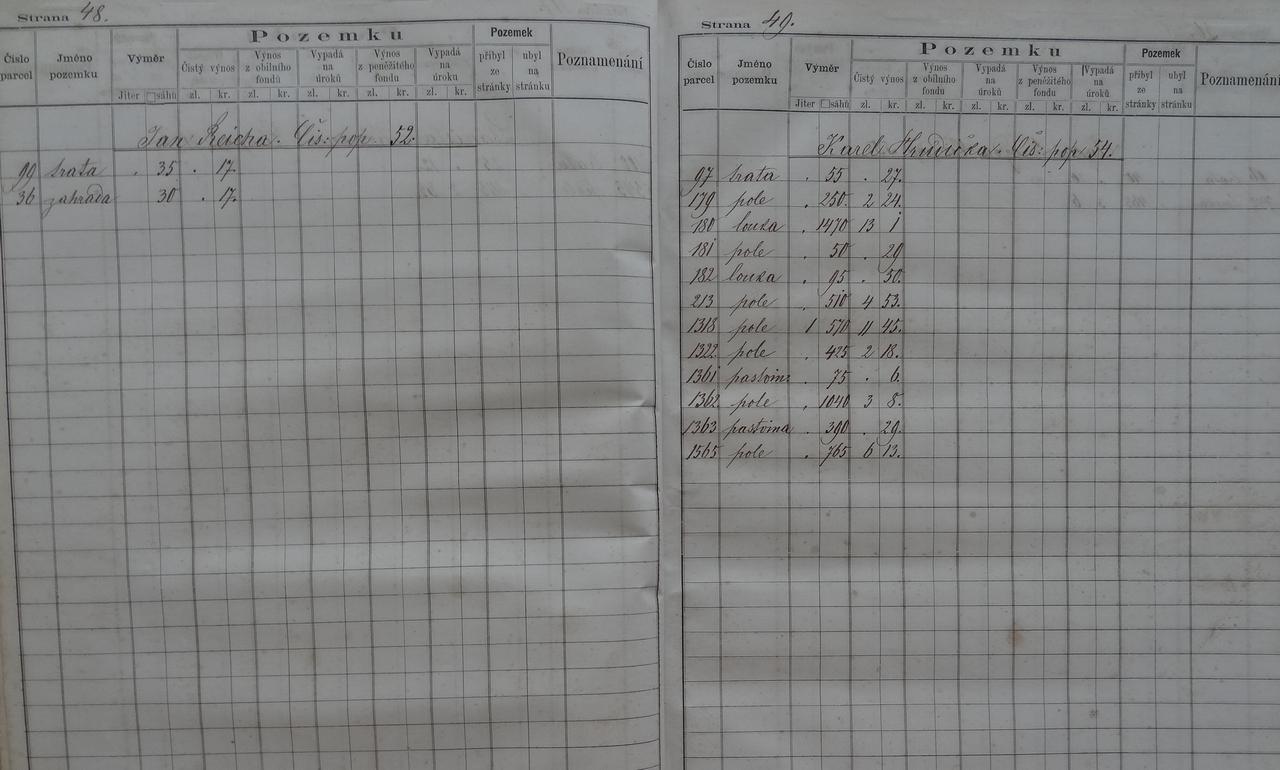 Strana 48.
Číslo parcel Jméno pozemku Výměr Pozemku Pozemek Poznamenání
Čistý výnos Výnos z obilního fondu Vypadá na úroků Výnos z peněžitého fondu Vypadá na úroku přibyl ze stránky ubyl na stránku
Jiter □sáhů zl. kr. zl. kr. zl. kr. zl. kr. zl. kr.
Jan Reicha. Čís: pop. 52.
99 trata . 35 . 17.
36 zahrada 30 . 17.
Strana 49.
Číslo parcel Jméno pozemku Výměr Pozemku Pozemek Poznamenání
Čistý výnos Výnos z obilního fondu Vypadá na úroků Výnos z peněžitého fondu Vypadá na úroku přibyl ze stránky ubyl na stránku
Jiter □sáhů zl. kr. zl. kr. zl. kr. zl. kr. zl. kr.
Karel Hrdička. Čís: pop 54.
97 trata . 55 . 27.
179 pole . 250. 2 24.
180 louka . 1470 13 1
181 pole . 50 . 29
182 louka . 95 . 50.
213 pole . 510 4 53.
1318 pole 1 570 11 45.
1322 pole . 425 2 18.
1361 pastvina . 75 . 6.
1362 pole . 1040 3 8.
1363 pastvina . 390 . 29.
1565 pole . 765 6 13.